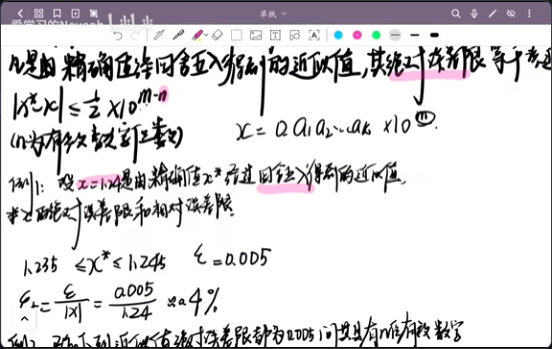 草纸
凡是由精确值经四舍五入得到的近似值,其绝对误差限等于
|x*-x| ≤ 1/2 ×10^(m-n)
(n为有效数字正整数)
x = 0.a₁a₂...aₖ ×10^m.
例1: 设x=1.24是由精确值x*经过四舍五入得到的近似值,
求x的绝对误差限和相对误差限.
1.235 ≤x*≤1.245 ε=0.005
εᵣ = ε/|x| = 0.005/1.24 ≈0.4%
近似值绝对误差限都为0.005 问其具有几位有效数字